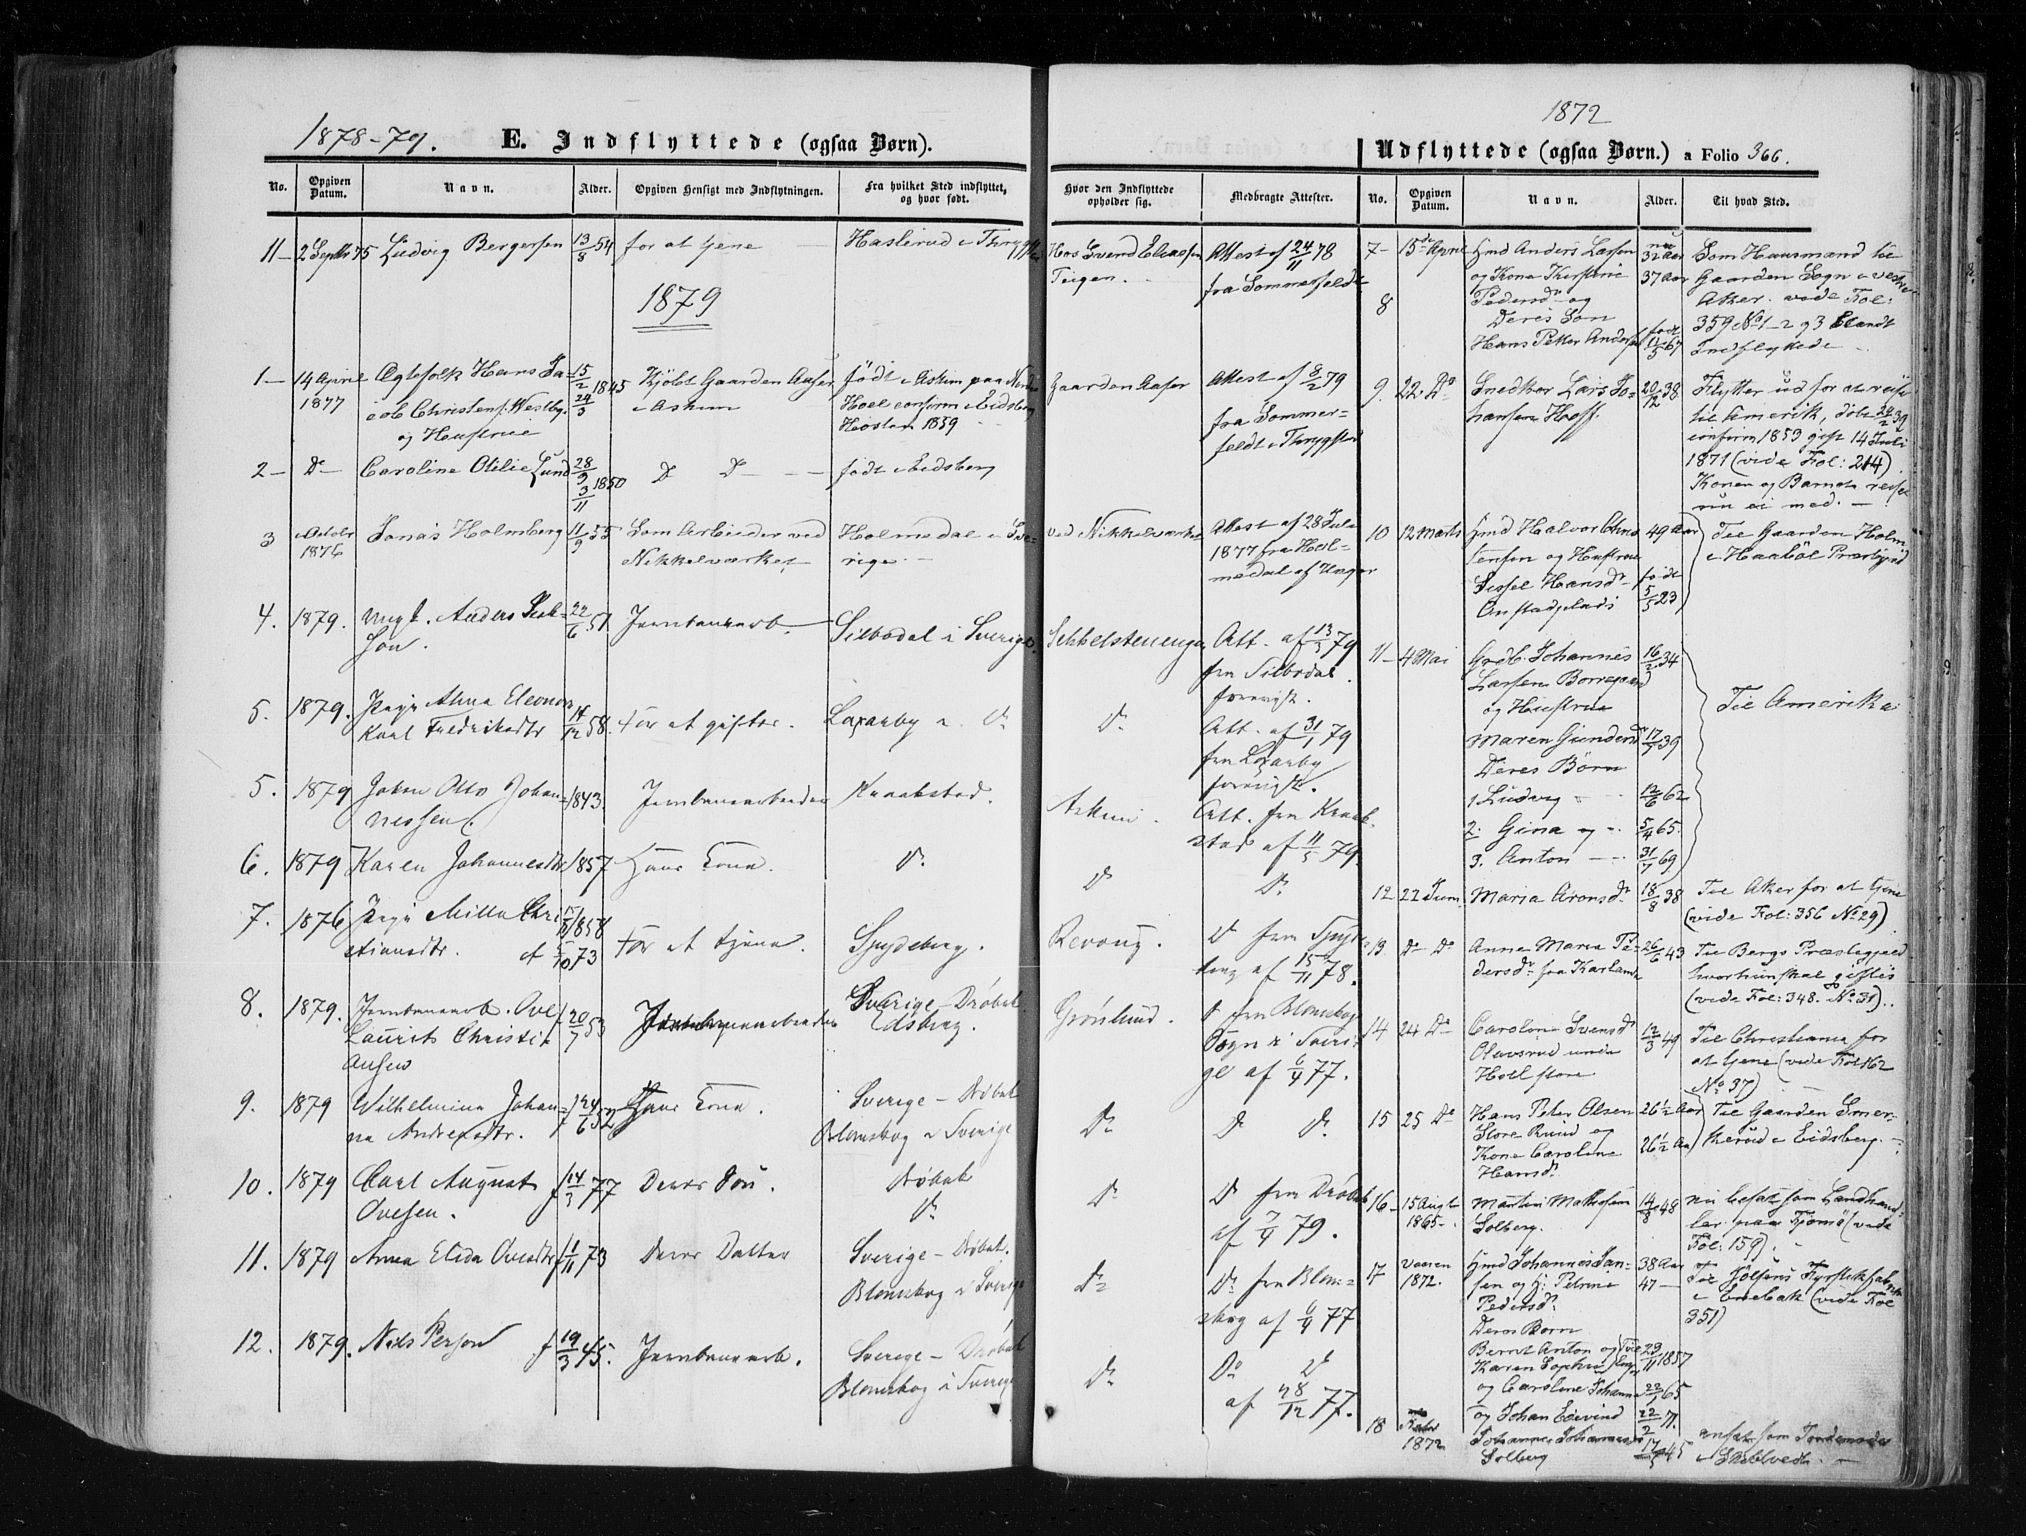 1878-79. E. Indflyttede (ogsaa Børn).
No. Opgiven Datum. Navn. Alder. Opgiven Hensigt med Indflytningen. Fra hvilket Sted indflyttet, og hvor født. Hvor den Indflyttede opholder sig. Medbragte Attester.
11 – 2 Septbr 75 Ludvig Bergersen 13/8 54 for at tjene Haslerud i Hos Svend Eliassen Attest af 24/11 78
Teigen. fra Sommerfeldt
1879
1 – 14 April Ægtefolk Hans Ja- 15/2 1845 Kjøbt Gaarden Aaser født i Askim paa Gaarden Aaser Attest af 8/2 79
1877 cob Christens. Westby 24/3 i Askim Hoel confirm i Eidsberg fra Sommer-
og Hustrue Høsten 1859 feldt i Thrygstad
2 – Do Caroline Otilie Lund 28/9 1850 D D født i Eidsberg
3/11
3 Octobr Jonas Holmberg 11/9 55 Som Arbeider ved Holmedal i Sve- ved Nikkelværket Attest af 28 Juli
1876 Nikkelværket rige. 1877 fra Hol-
medal af Unger
4. 1879. Ungk. Anders 22/6 51 Jernbanearb. Silbodal i Sverige. Sekkelstenengen Att. af 13/ 79
son. fra Silbodal
5. 1879. Pige Alma Eleonora 14/12 58. For at giftes. Laxarby i Do Do Att. af 31/1 79
Karl Fredriksdtr fra Laxarby
5. 1879 Johan Otto Johan- 1843. Jernbanearbeider Kraakstad. Askim. Att. fra Kraak-
nessen. stad af 11/5 79
6. 1879 Karen Johannesdtr 1857 Hans Kone. Do Do Do
7. 1876 Pige Milla Chri- 1858 For at tjene. Spydeberg. D fra Spyde-
stiansdtr. 73 berg af 15/11 78.
8. 1879. Jernbanearb. Ove f 20/7 53 Jernbanearbeider Sverige – Drøbak Grønlund. D fra Blomskog
Laurits Christi- Sogn i Sveri-
ansen ge af 6/4 77.
9. 1879 Wilhelmine Johan- f 24/6 52 Hans Kone. Sverige – Drøbak Do D Do
na Andreasdtr. Blomskog i Sverige
10. 1879 Carl August f 14/3 77 Deres Søn. Drøbak Do D fra Drøbak
Ovesen. Do af 7/4 79.
11. 1879 Anna Elida Ovesdtr f 1/11 73 Deres Datter Sverige – Drøbak. Do Do fra Blom-
Blomskog i Sverige skog af 6/4 77
12. 1879. Nils Person f 19/3 45. Jernbanearb. Sverige – Drøbak Do Do D
Blomskog i Sverige af 28/12 77.
1872
Udflyttede (ogsaa Børn.) a Folio 366.
No. Opgiven Datum. Navn. Alder. Til hvad Sted.
7 – 15de April Hmd Anders Larsen nu 32 Aar Som Huusmand til
og Kone Kirstine 37 Aar Gaarden Sogn i vestre
8 Pedersdr og Aker. vide Fol:
Deres Søn 359 No 1 – 2 og 3 blandt
Hans Peter Anders født 11/5 67 Indflyttede
9. 22 Do Snedker Lars Jo- 20/12 38 Flytter ud for at reise
hansen Hoff. til Amerik, døbt 24/2 39
confirm 1853 gift 14 Juli
1871 (vide Fol: 214).
Konen og Barnet reiser
nu ei med. –
10 12 Marts Hmd Halvor Chris- 49 Aar Til Gaarden Holm
tensen og Hustrue i Haabøl Præstegjeld
Sissel Hansdr født
Onstadplads 5/5 23
11 – 4 Mai Grdb. Johannes 16/2 34
Larsen Borregaard
og Hustrue Til Amerika
Maren Gundersdr 17/ 39
Deres Børn
1. Ludvig 12/6 62
2. Gina og 5/4 65.
3. Anton 31/7 69
12 22 Juni Maria Aronsdr 18/8 38 Til Aker for at tjene
(vide Fol: 356 No 29).
13. Do Do Anne Maria Pe- 26/6 43 Til Bergs Præstegjeld
dersdr fra Karlanda hvor hun skal giftes
(vide Fol: 348. No 31).
14 24 Do Caroline Svensdr 12/3 49 Til Christiania for
Olavsrud under at tjene (vide Fol 162
Hoel store No 37)
15 25 Do Hans Peter Olsen 26 1/2 Aar Til Gaarden Smer-
Store Rud og kerud i Eidsberg.
Kone Caroline 26 1/2 Aar
Hansdr
16 – 15 Augt Martin Mathesen 14/8 48 nu bosat som Landhand-
1865 – Solberg. ler paa Tjømø (vide
Fol: 159).
17 Vaaren Hmd Johannes Jan- 38 Aar Til
1872. sen og H: Petrine 47 – i Enebak (vide Fol
Pedersdr 351)
Deres Børn
Bernt Anton og 23/11 1857
Karen Sophie
og Caroline Johanne 22/ 65
og Johan Edevind 22/2 71.
18 1872 Johannes Johannesen 17/ 45 ansat som
Solberg i Skiptvedt. –